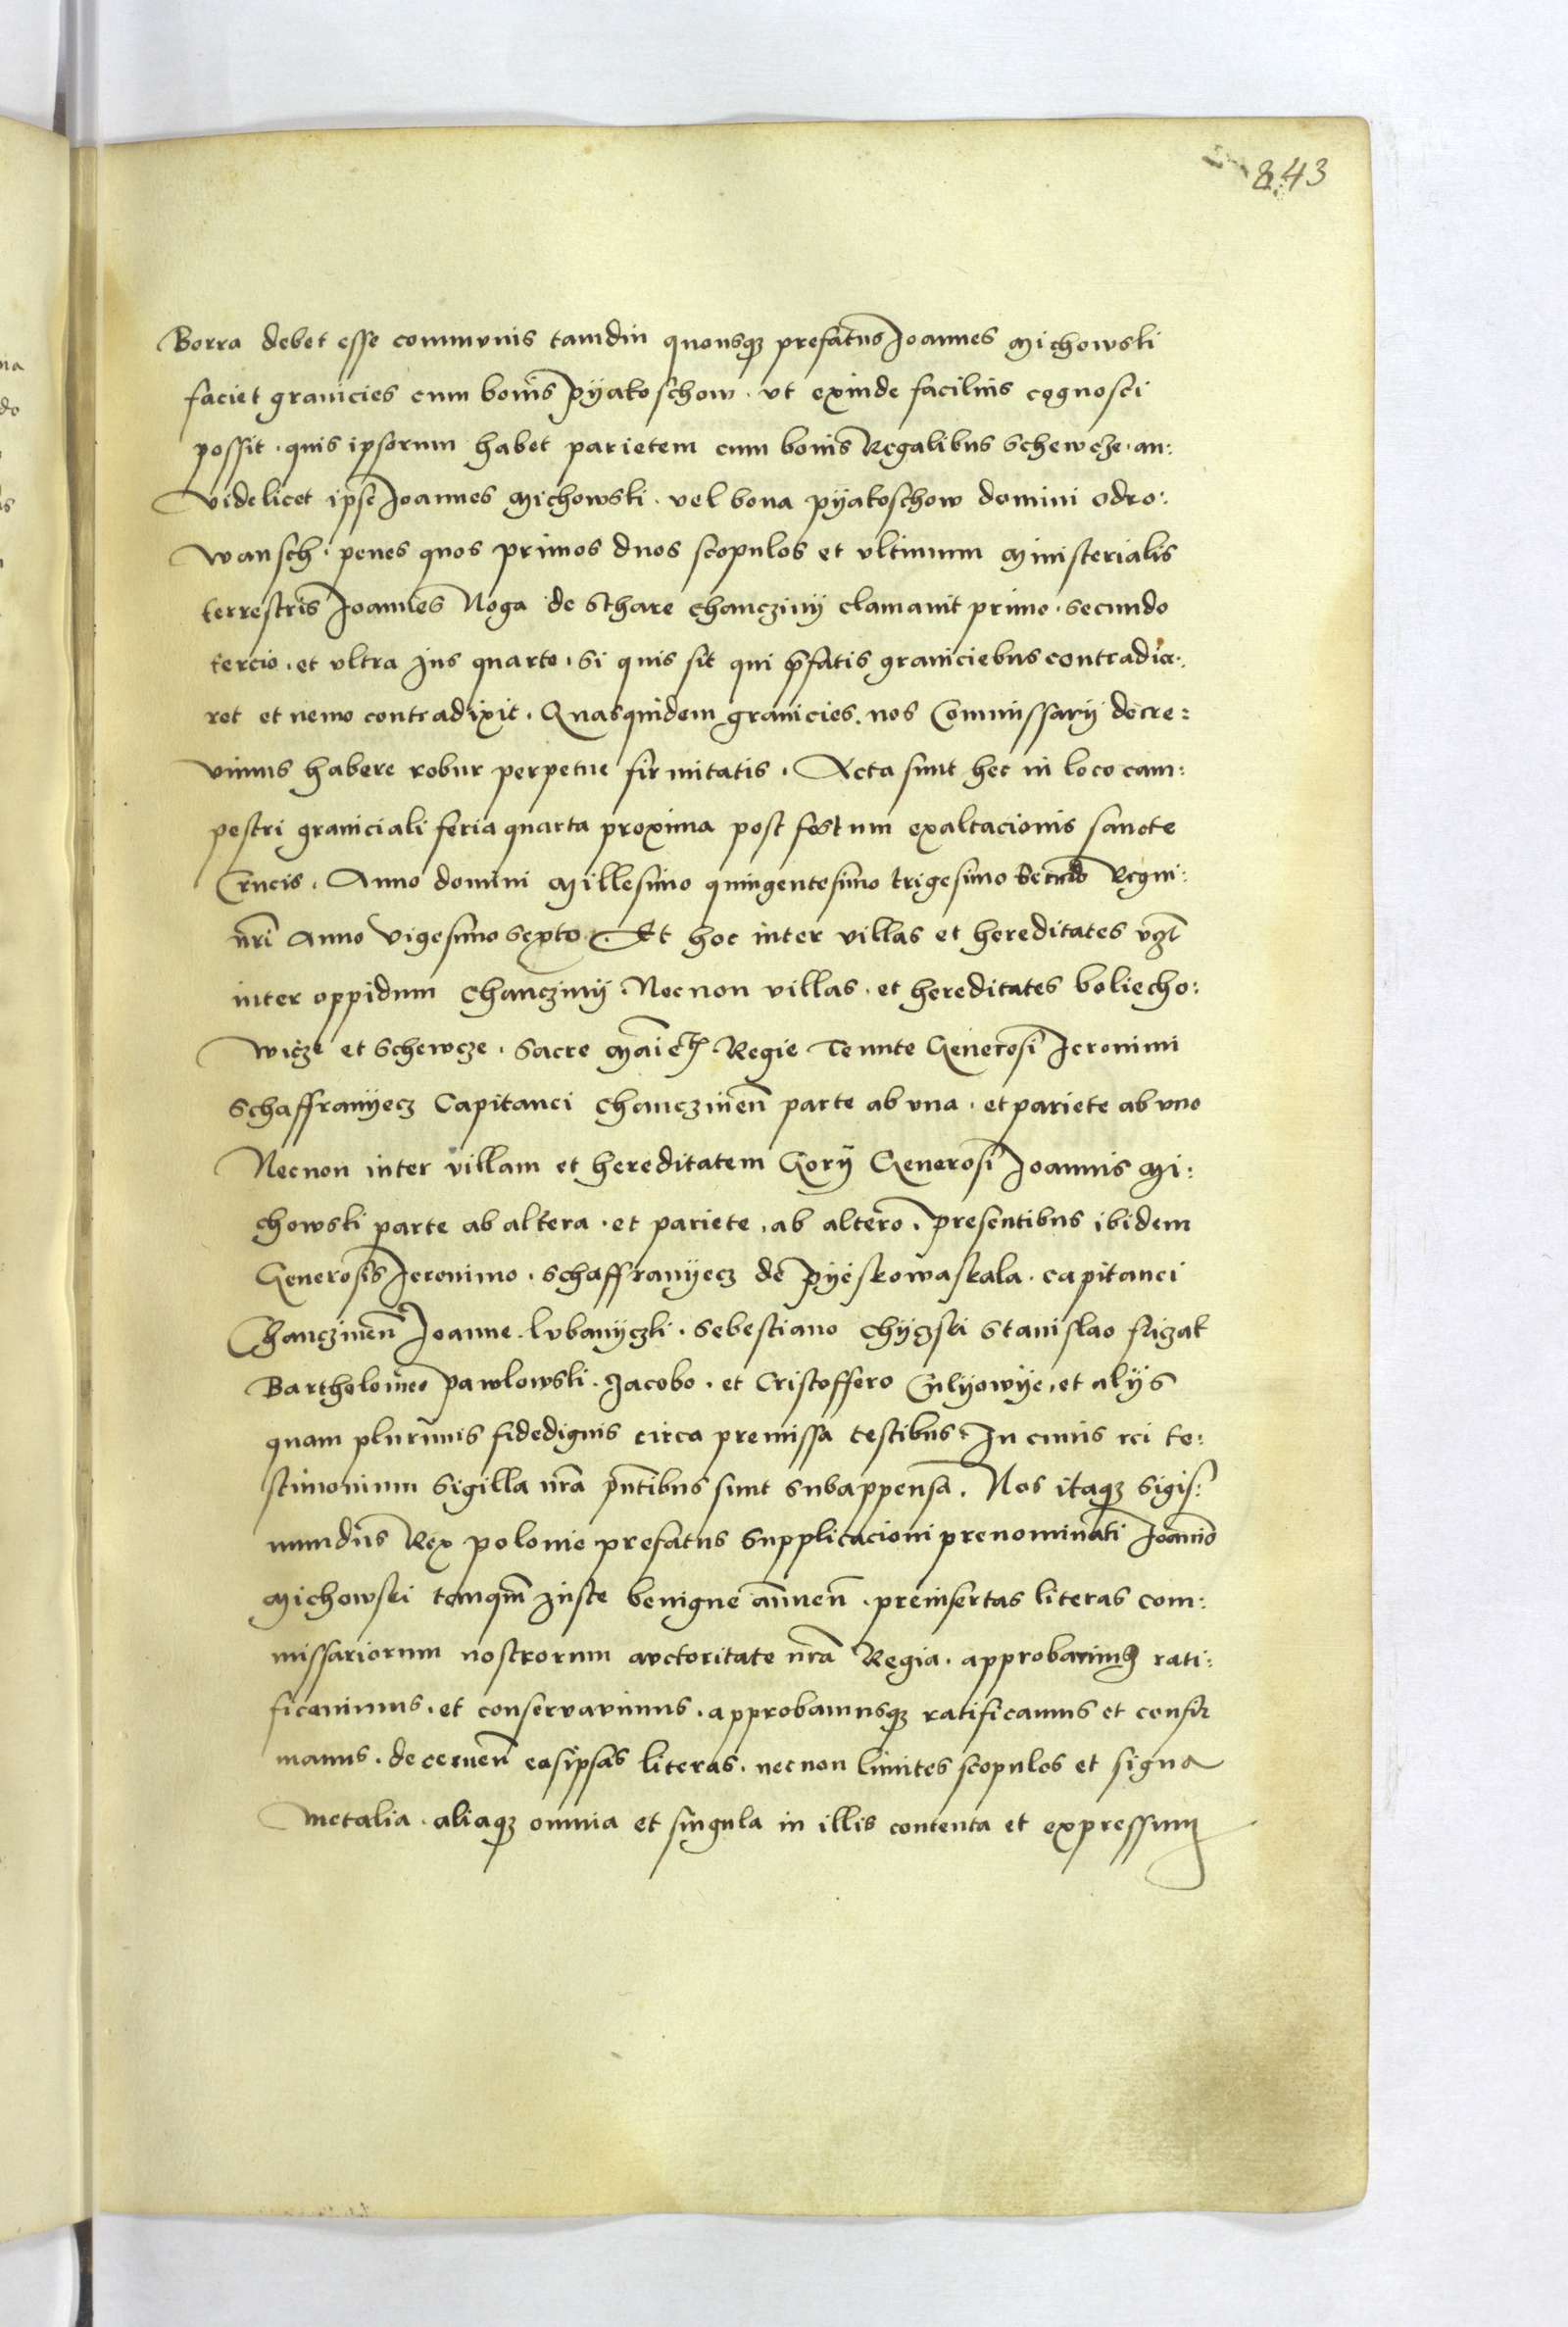 843
Borra debet esse communis tamdiu quousqꝫ prefatus Joannes Michowski
faciet granicies cum bonis Pyatoschow. ut exinde facilius cognosci
possit. quis ipsorum habet parietem cum bonis Regalibus Schewcze. an:
videlicet ipse Joannes Michowski. vel bona pyatoschow domini odro:
wansch. penes quos primos duos scopulos et ultimum Ministerialis
terrestris Joannes Noga de Sthare Chancziny clamavit primo. secundo
tercio. et ultra ius quarto. Si quis sit qui p̄fatis graniciebus contradice:
ret et nemo contradixit. Quasquidem granicies. nos Commissarij decre:
vimus habere robur perpetue firmitatis. Acta sunt hec in loco cam:
pestri graniciali feria quarta proxima post festum exaltacionis sancte
Crucis. Anno domini Millesimo quingentesimo trigesimo secundo Regni:
nr̄i Anno vigesimo sexto. Et hoc inter villas et hereditates vꝫ
inter oppidum Chancziny. Necnon villas. et hereditates boliecho:
wicze et Schewcze. Sacre Maiet̄ꝫ Regie Tenute Generosi Jeronimi
Schaffranyecz Capitanei Chanczineñ parte ab una. et pariete ab uno
Necnon inter villam et hereditatem Gory Generosi Joannis Mi:
chowski parte ab altera. et pariete. ab altero. presentibus ibidem
Generosis Jeronimo. Schaffranyecz de Pyeskowaskala. capitanei
Chanczineñ Joanne. Lubanyczki. Sebestiano Chyczski Stanislao frizak
Bartholomeo Pawlowski. Jacobo. et Cristoffero et alijs
quam plurimis fidedignis circa premissa testibus. In cuius rei te:
stimonium Sigilla nr̄a pn̄tibus sunt subappensa. Nos itaqꝫ Sigis:
mundus Rex polonie prefatus Supplicacioni prenominati Joannis
Michowski tanqm̄ iuste benigne annueñ. preinsertas literas com:
missariorum nostrorum auctoritate nr̄a Regia. approbavimus rati:
ficavimus. et conservavimus. approbamusqꝫ ratificamus et confir
mamus. decerneñ easipsas literas. necnon limites scopulos et signa
metalia. aliaqꝫ omnia et singula in illis contenta et expressum